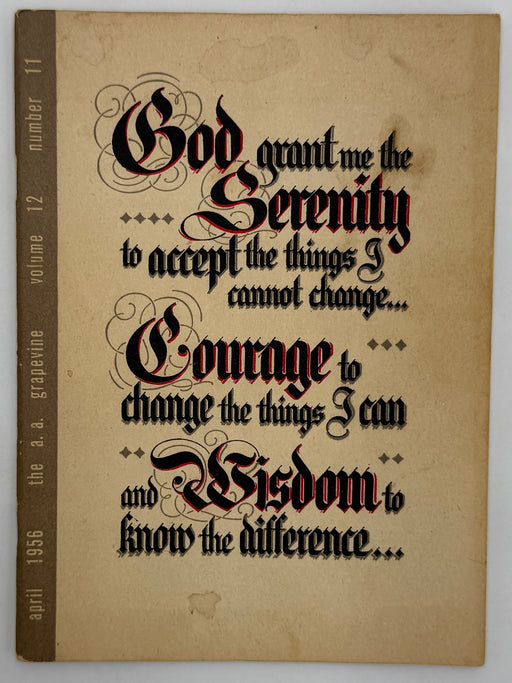 april 1956 the a.a. grapevine volume 12 number 11
God grant me the
Serenity
to accept the things I
cannot change...
Courage to
change the things I can
and Wisdom to
know the difference...